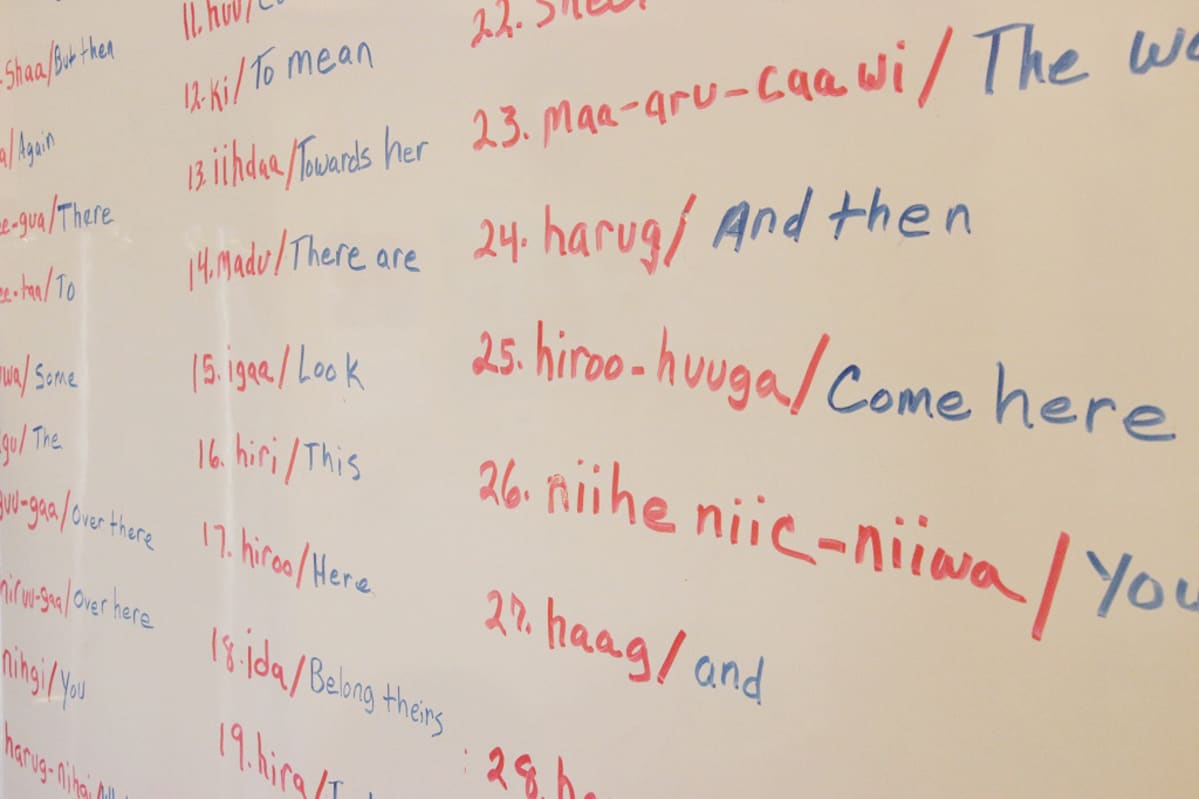 Shaa/But then
a/Again
e-gua/There
e-taa/To
wa/Some
gu/The
uu-gaa/Over there
hiruu-gaa/Over here
nihgi/You
harug-nihgi/
11. huu/
12. Ki/To mean
13. iihdaa/Towards her
14. madu/There are
15. igaa/Look
16. hiri/This
17. hiroo/Here
18. ida/Belong theirs
19. hira/
22.
23. maa-aru-caawi/The
24. harug/And then
25. hiroo-huuga/Come here
26. niihe niic-niiwa/You
27. haag/and
28.